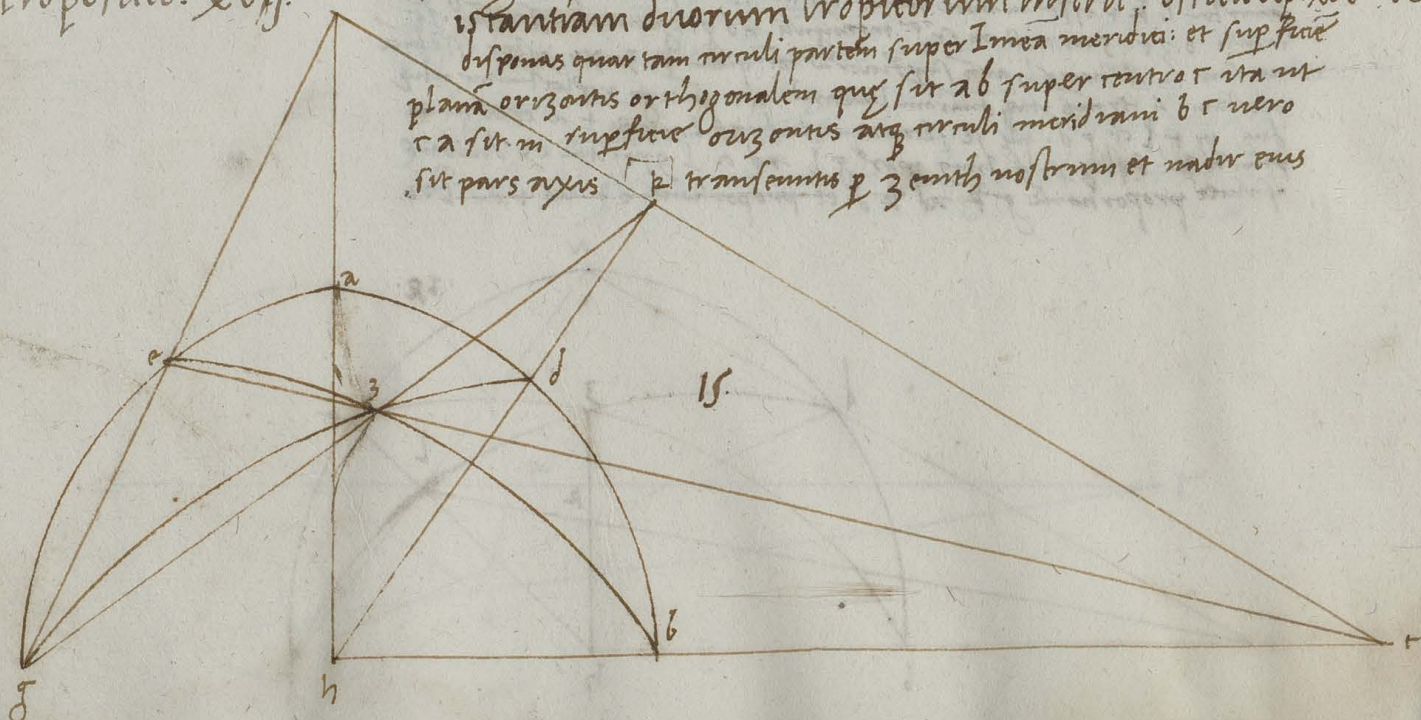 Propositio. xvii.
istantiam duorum tropicorum
disponas quartam circuli partem super lineā meridiei: et supficiē
planā orizontis orthogonalem quę sit a b super centro c ita ut
c a sit in supficie orizontis atq circuli meridiani b c uero
sit pars axis transeuntis p zenith nostrum et nadir eius
k
a
e
z
d
15.
b
r
g
h